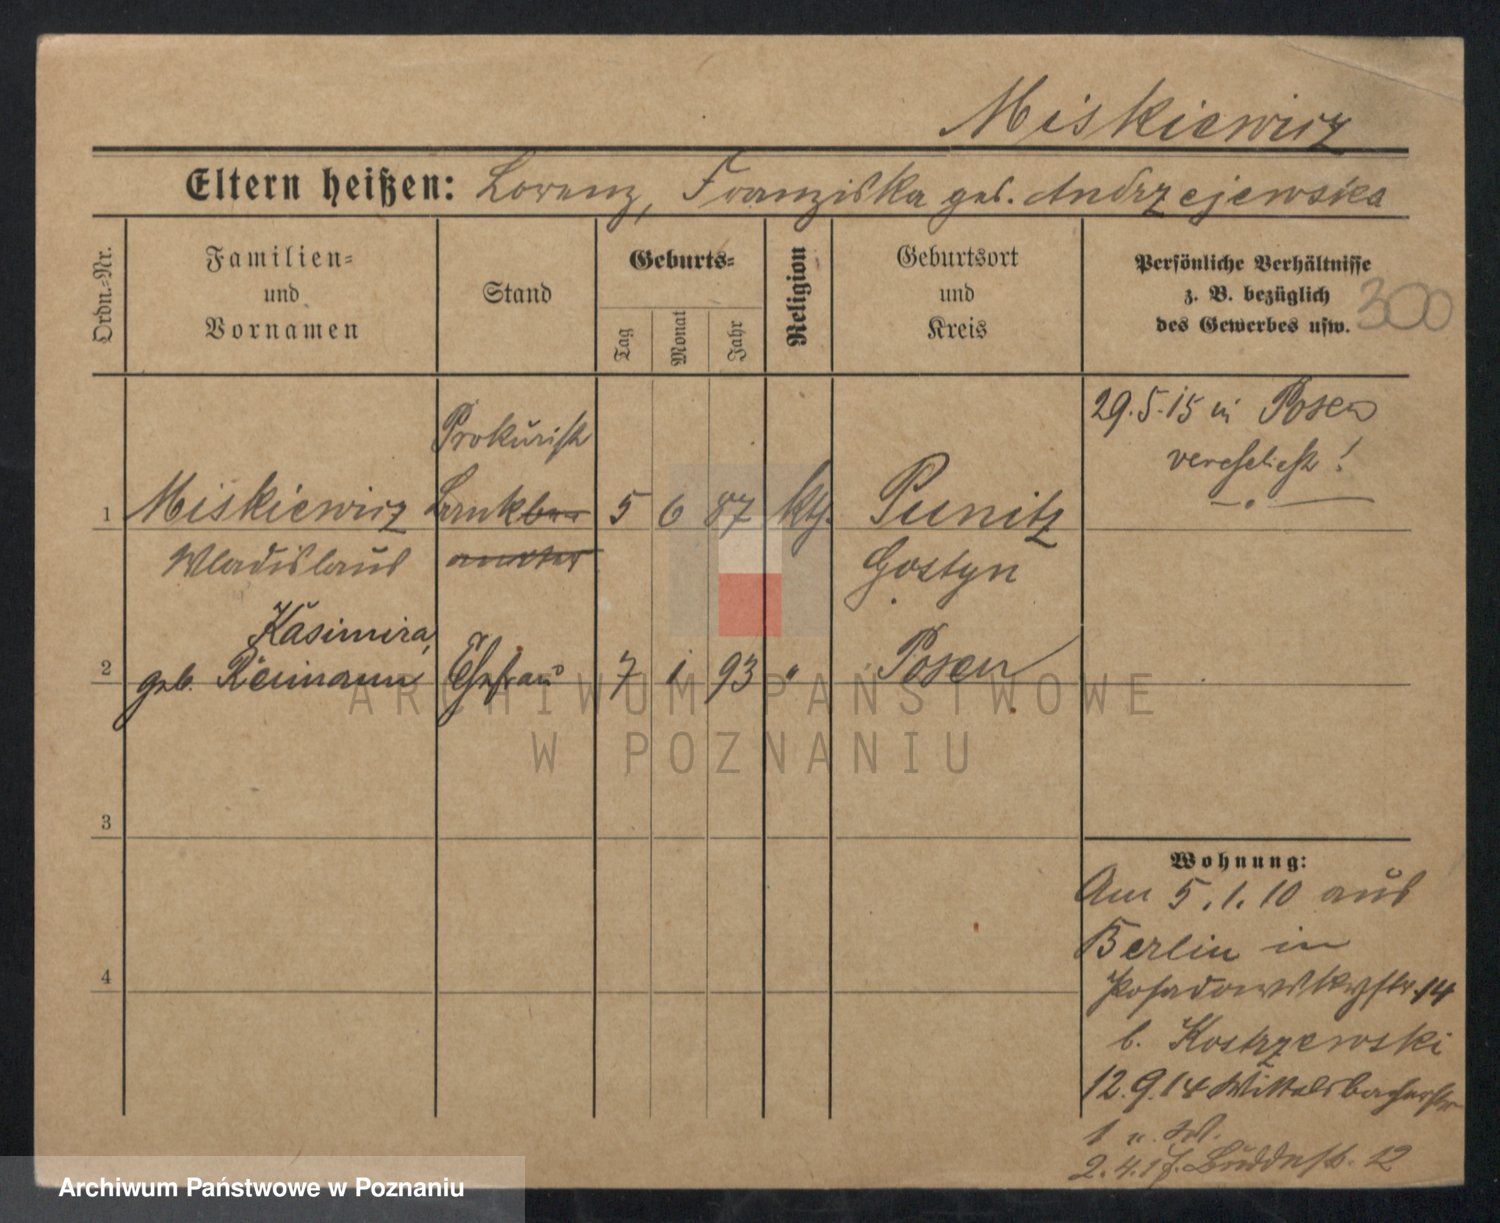 Miskiewicz
Eltern heißen: Lorenz, Franziska geb. Andrzejewska
Ordn.-Nr.
Familien-
und
Vornamen
Stand
Geburts-
Tag
Monat
Jahr
Religion
Geburtsort
und
Kreis
Persönliche Verhältnisse
z. B. bezüglich
des Gewerbes usw.
300
Prokurist
29.5.15 in Posen
verehelicht!
1 Miskiewicz Bankbe- 5 6 87 kth. Punitz
Wladislaus amter Gostyn
Kasimira,
2 geb. Reimann Ehefrau 7 1 93 " Posen
3
4
Wohnung:
Am 5.1.10 aus
Berlin in
Posadowskystr. 14
b. Kostrzewski
12.9.14 Wittelsbacherstr
1 u. W.
2.4.17. Buddestr. 12
ARCHIWUM PAŃSTWOWE
W POZNANIU
Archiwum Państwowe w Poznaniu